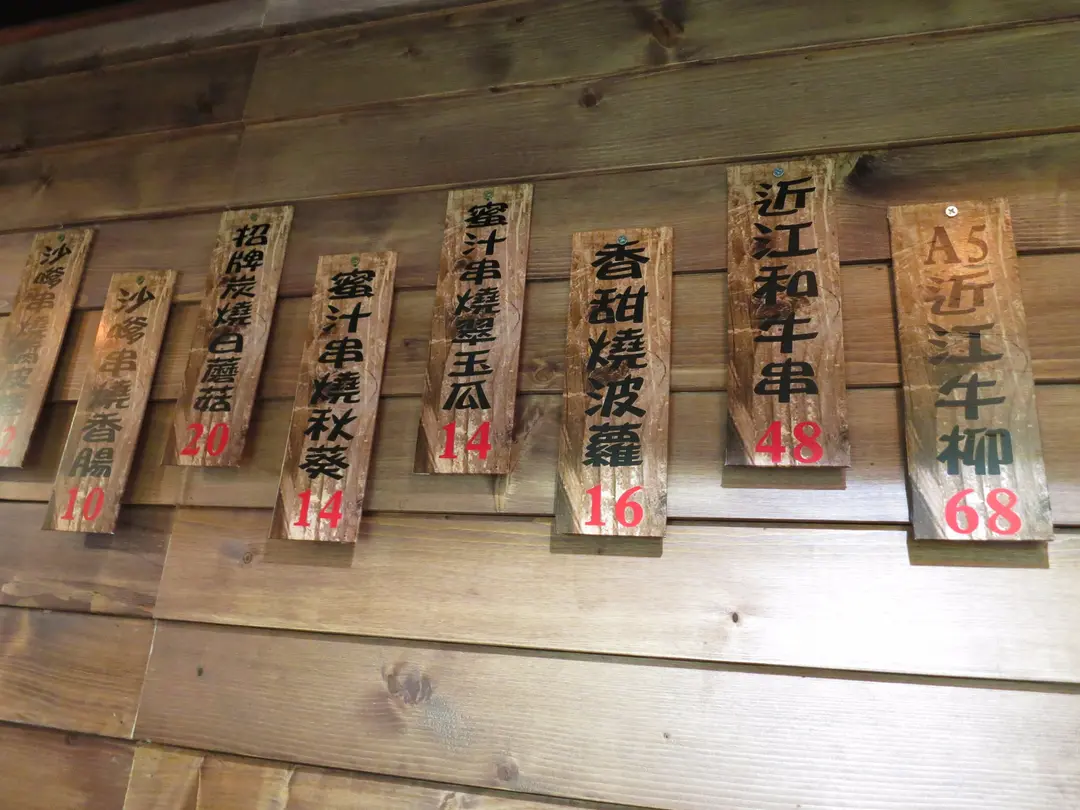 沙嗲串燒
沙嗲串燒香腸
10
招牌炭燒白蘑菇
20
蜜汁串燒秋葵
14
蜜汁串燒翠玉瓜
14
香甜燒波蘿
16
近江和牛串
48
A5近江牛柳
68